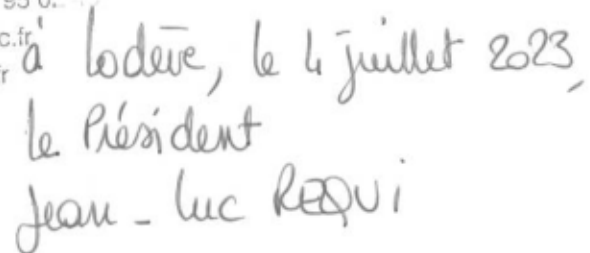 c.fr
à Lodève, le 4 juillet 2023,
le Président
Jean-Luc REQUI